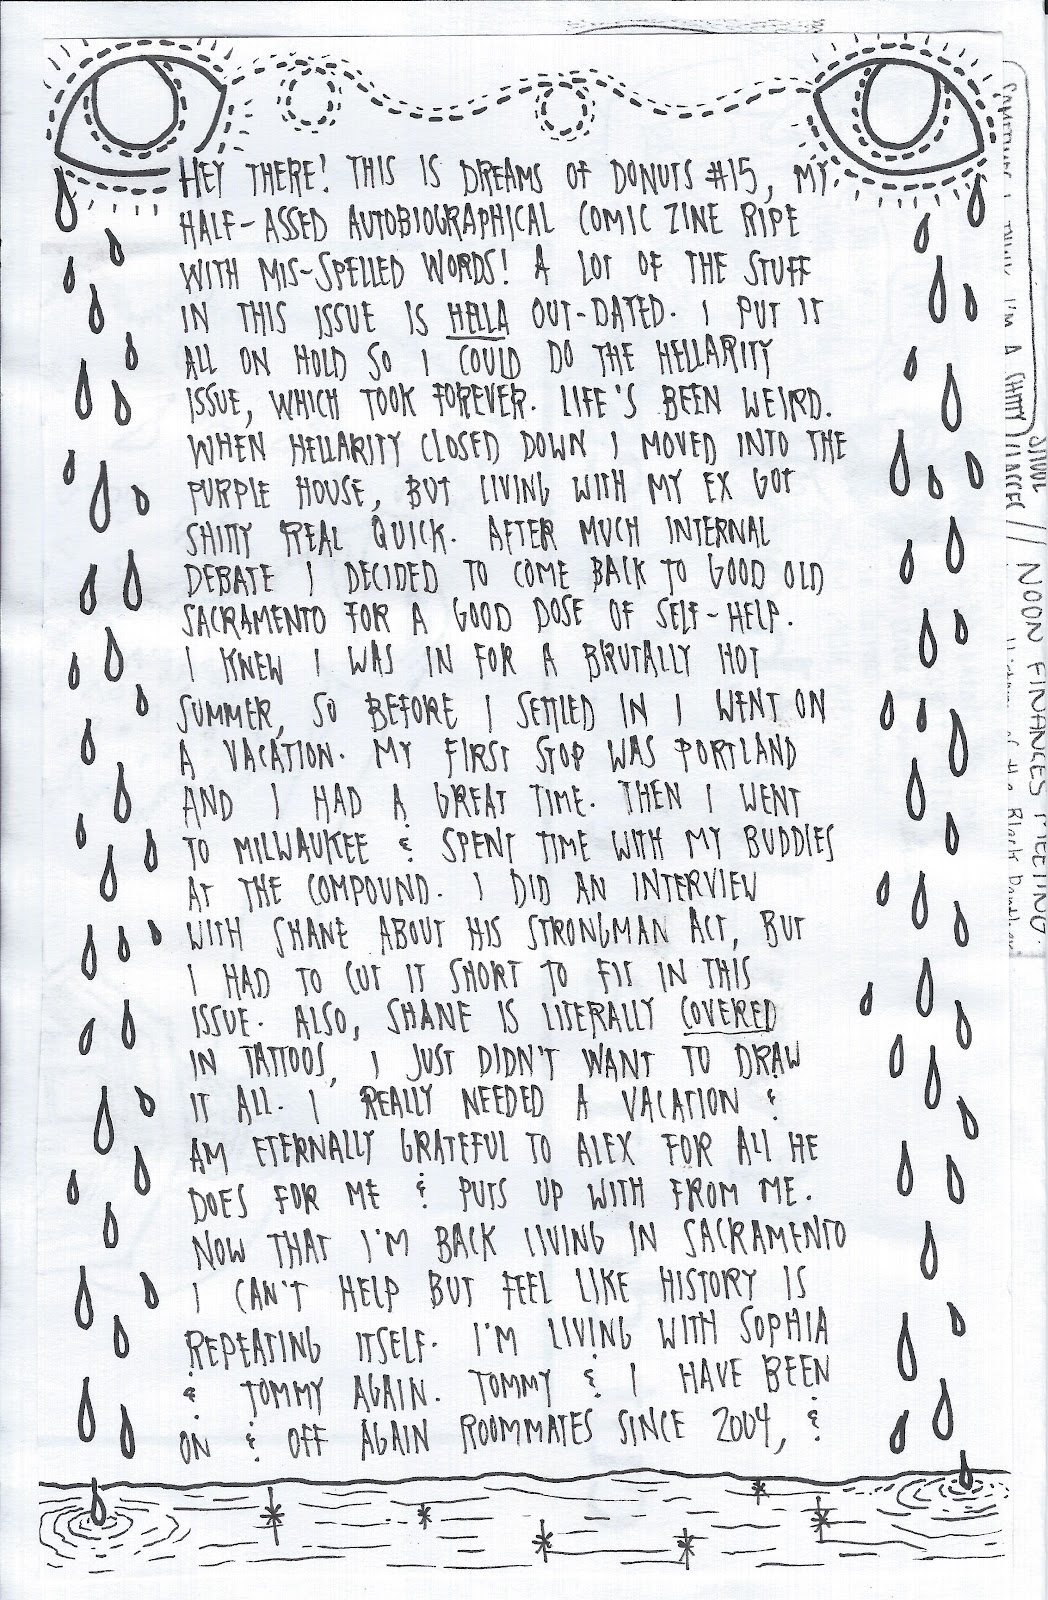 HEY THERE! THIS IS DREAMS OF DONUTS #15, MY
HALF-ASSED AUTOBIOGRAPHICAL COMIC ZINE RIPE
WITH MIS-SPELLED WORDS! A LOT OF THE STUFF
IN THIS ISSUE IS HELLA OUT-DATED. I PUT IT
ALL ON HOLD SO I COULD DO THE HELLARITY
ISSUE, WHICH TOOK FOREVER. LIFE'S BEEN WEIRD.
WHEN HELLARITY CLOSED DOWN I MOVED INTO THE
PURPLE HOUSE, BUT LIVING WITH MY EX GOT
SHITTY REAL QUICK. AFTER MUCH INTERNAL
DEBATE I DECIDED TO COME BACK TO GOOD OLD
SACRAMENTO FOR A GOOD DOSE OF SELF-HELP.
I KNEW I WAS IN FOR A BRUTALLY HOT
SUMMER, SO BEFORE I SETTLED IN I WENT ON
A VACATION. MY FIRST STOP WAS PORTLAND
AND I HAD A GREAT TIME. THEN I WENT
TO MILWAUKEE & SPENT TIME WITH MY BUDDIES
AT THE COMPOUND. I DID AN INTERVIEW
WITH SHANE ABOUT HIS STRONGMAN ACT, BUT
I HAD TO CUT IT SHORT TO FIT IN THIS
ISSUE. ALSO, SHANE IS LITERALLY COVERED
IN TATTOOS, I JUST DIDN'T WANT TO DRAW
IT ALL. I REALLY NEEDED A VACATION &
AM ETERNALLY GRATEFUL TO ALEX FOR ALL HE
DOES FOR ME & PUTS UP WITH FROM ME.
NOW THAT I'M BACK LIVING IN SACRAMENTO
I CAN'T HELP BUT FEEL LIKE HISTORY IS
REPEATING ITSELF. I'M LIVING WITH SOPHIA
& TOMMY AGAIN. TOMMY & I HAVE BEEN
ON & OFF AGAIN ROOMMATES SINCE 2004, &
I'M A SHITTY
// NOON FINANCES MEETING.